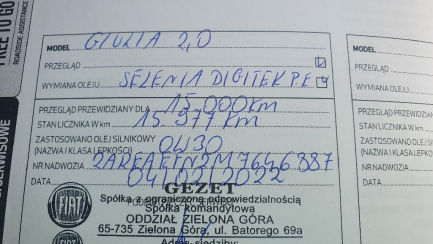 FREE TO GO
ROADSIDE ASSISTANCE
MODEL GIULIA 2,0
PRZEGLĄD
WYMIANA OLEJU SELENIA DIGITEK P.E
PRZEGLĄD PRZEWIDZIANY DLA 15 000 km
STAN LICZNIKA W km 15 377 km
ZASTOSOWANO OLEJ SILNIKOWY
(NAZWA I KLASA LEPKOŚCI) 0W30
NR NADWOZIA ZAREAEFN2M7646887
DATA 04/02/2022
GEZET
Spółka z ograniczoną odpowiedzialnością
Spółka komandytowa
ODDZIAŁ ZIELONA GÓRA
65-735 Zielona Góra, ul. Batorego 69a
Adres siedziby:
FIAT
MODEL
PRZEGLĄD
WYMIANA OLEJU
PRZEGLĄD PRZEWIDZIAN
STAN LICZNIKA W km
ZASTOSOWANO OLEJ S
(NAZWA I KLASA LEPKO
NR NADWOZIA
DATA